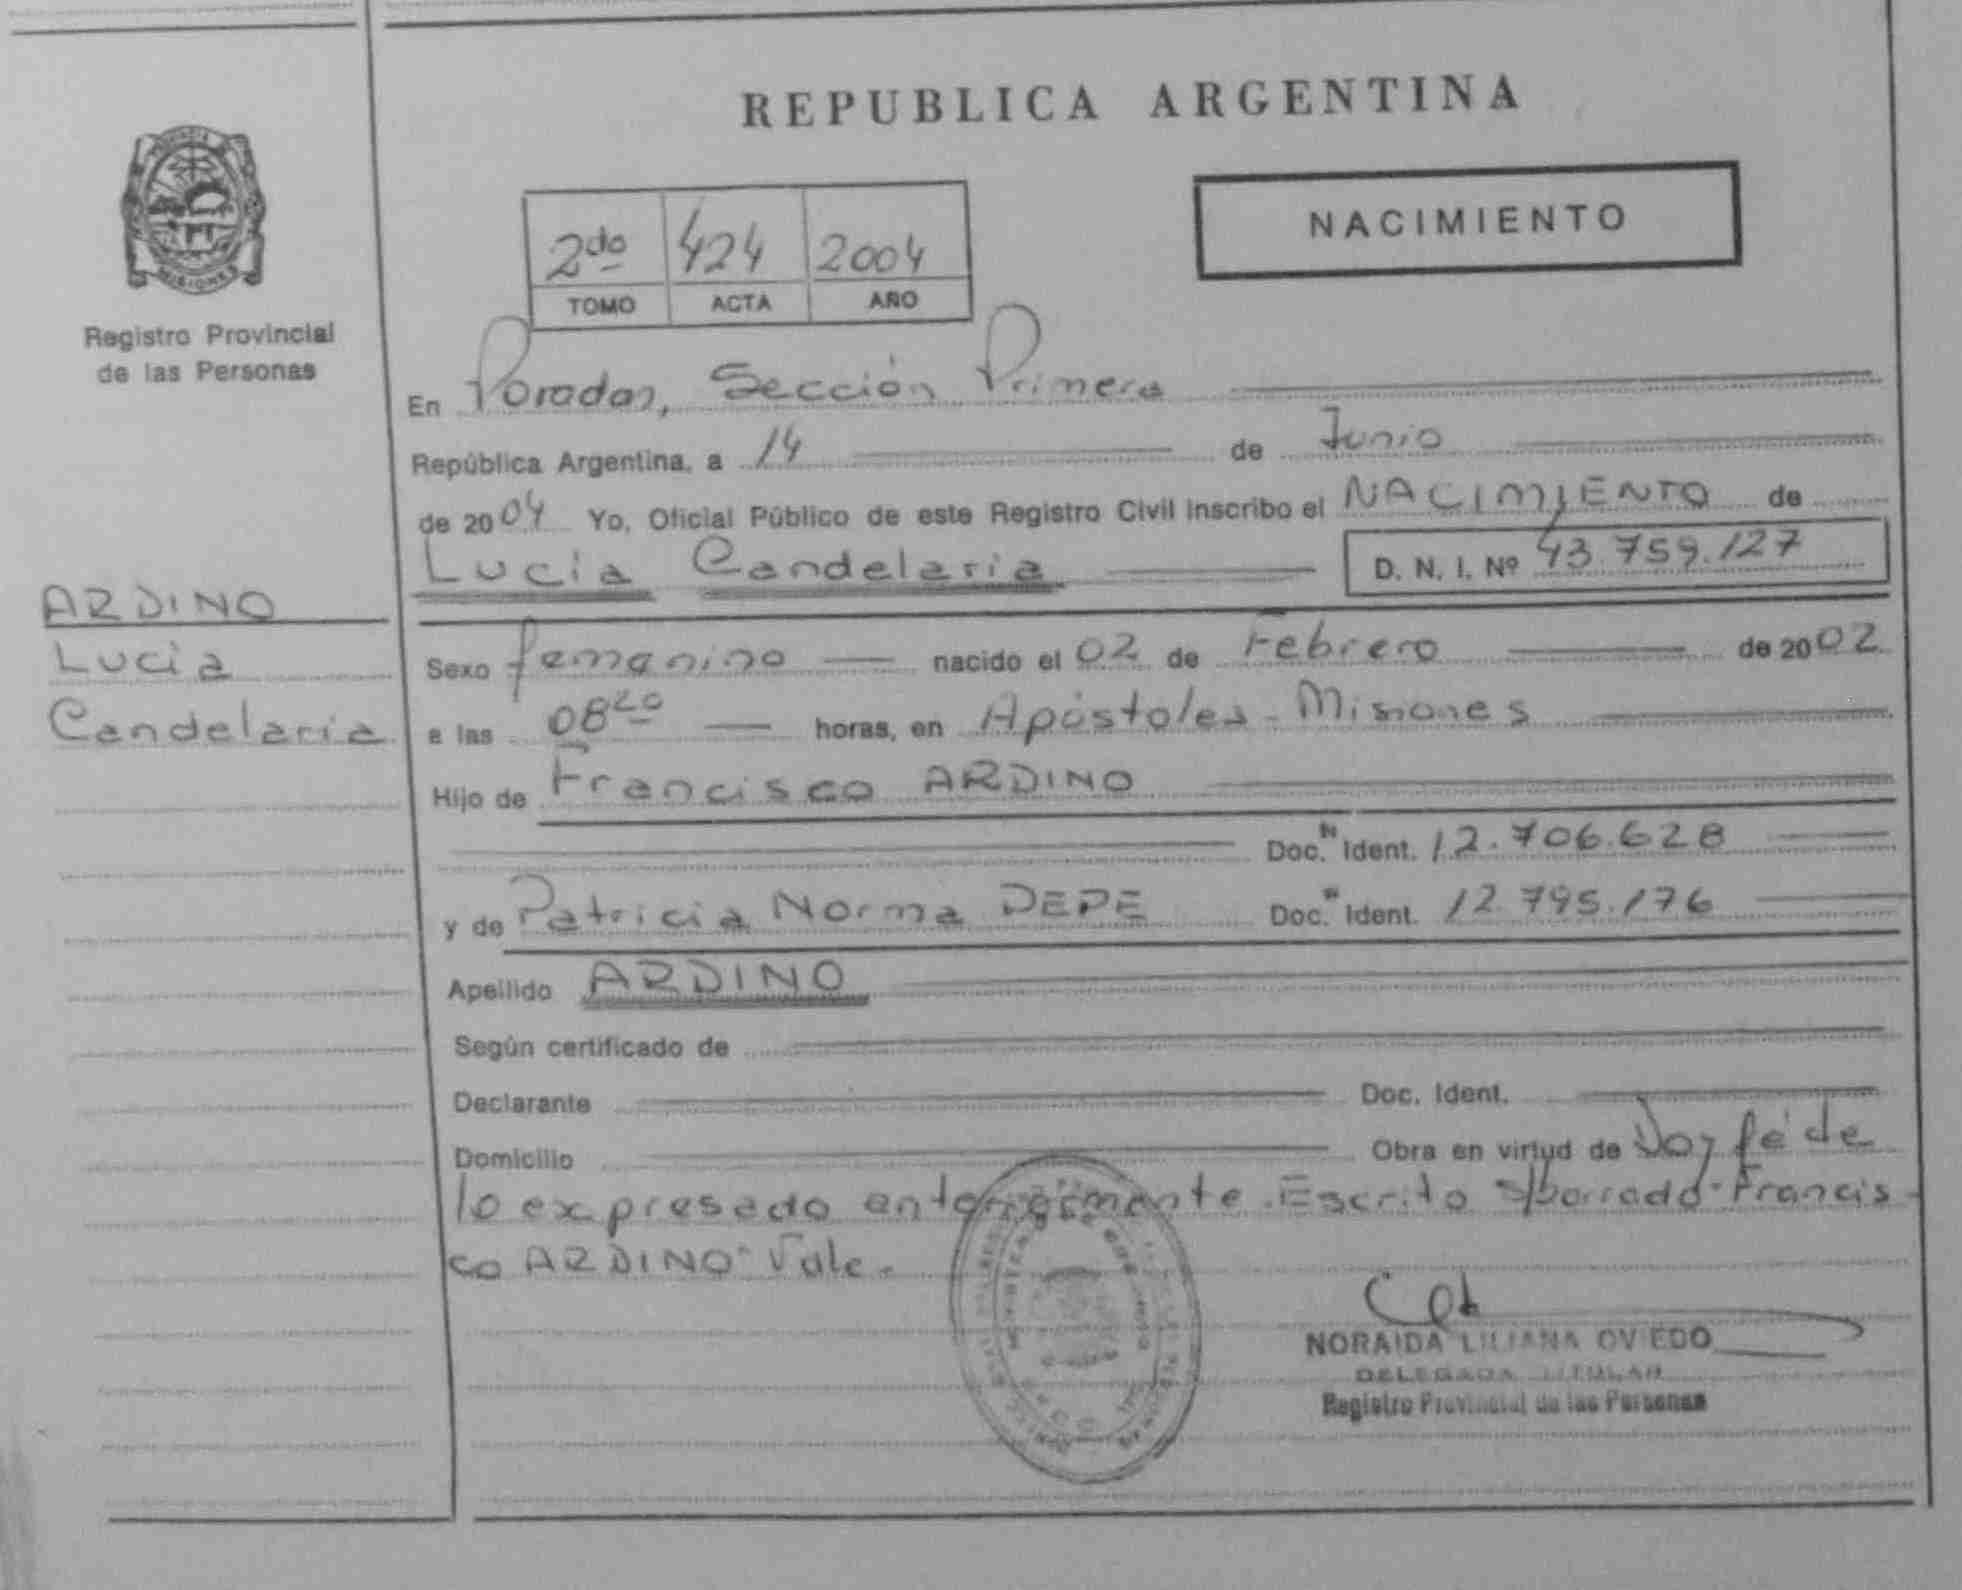 REPUBLICA ARGENTINA
NACIMIENTO
2do 424 2004
TOMO ACTA AÑO
MISIONES
Registro Provincial
de las Personas
En Posadas, Sección Primera
República Argentina, a 14 de Junio
de 2004 Yo, Oficial Público de este Registro Civil inscribo el NACIMIENTO de
Lucía Candelaria D. N. I. Nº 43.759.127
ARDINO
Lucía
Candelaria
Sexo femenino nacido el 02 de Febrero de 2002
a las 08 20 horas, en Apóstoles - Misiones
Hijo de Francisco ARDINO
Doc. Ident. 12.706.628
y de Patricia Norma DEPE Doc. Ident. 12.795.176
Apellido ARDINO
Según certificado de
Declarante Doc. Ident.
Domicilio Obra en virtud de Doy fé de
lo expresado anteriormente. Escrito s/borrado "Francis
co ARDINO" Vale.
NORAIDA LILIANA OVIEDO
DELEGADA TITULAR
Registro Provincial de las Personas